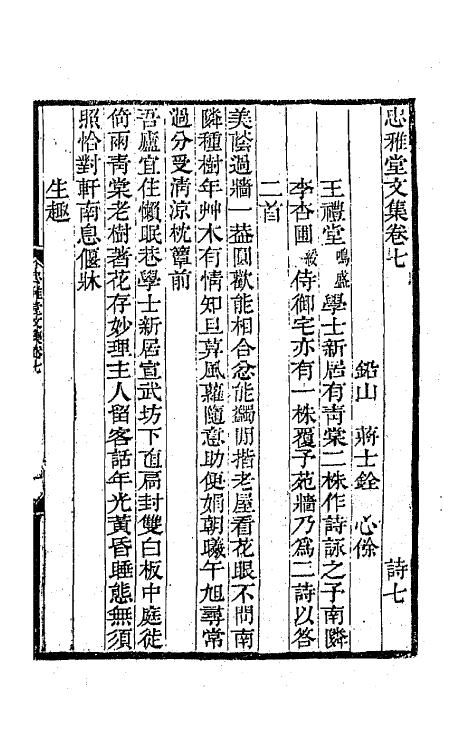 忠雅堂文集卷七　詩七
鉛山　蔣士銓　心餘
王禮堂鳴盛學士新居有靑棠二株作詩詠之予南隣
李杏圃敏侍御宅亦有一株覆予苑牆乃爲二詩以答
二首
美蔭過牆一葢圓歡能相合忿能蠲閒揩老屋看花眼不問南
隣種樹年艸木有情知旦莫風蘿隨意助便娟朝曦午旭尋常
過分受淸涼枕簟前
吾廬宜住懶眠巷學士新居宣武坊下直扃封雙白板中庭徙
倚兩靑棠老樹著花存妙理主人留客話年光黃昏睡態無須
照恰對軒南息偃牀
生趣
忠雅堂文集卷七